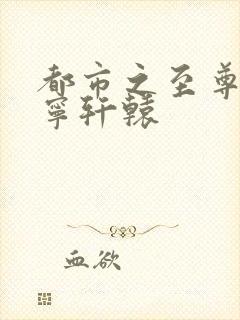 都市之至尊
宁轩辕
血欲